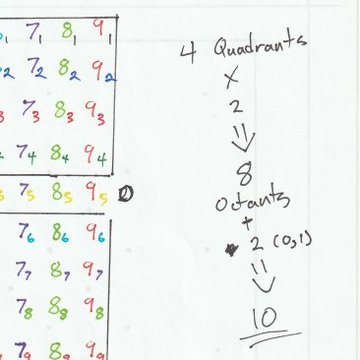 7₁ 8₁ 9₁
₂ 7₂ 8₂ 9₂
₃ 7₃ 8₃ 9₃
₄ 7₄ 8₄ 9₄
₅ 7₅ 8₅ 9₅ 0
7₆ 8₆ 9₆
7₇ 8₇ 9₇
7₈ 8₈ 9₈
7₉ 8₉ 9₉
4 Quadrants
X
2
8
Octants
+
2 (0,1)
10